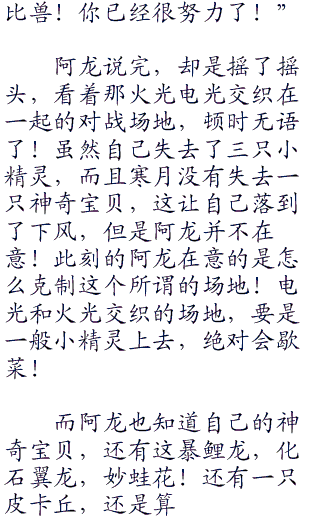 比兽！你已经很努力了！”
阿龙说完，却是摇了摇
头，看着那火光电光交织在
一起的对战场地，顿时无语
了！虽然自己失去了三只小
精灵，而且寒月没有失去一
只神奇宝贝，这让自己落到
了下风，但是阿龙并不在
意！此刻的阿龙在意的是怎
么克制这个所谓的场地！电
光和火光交织的场地，要是
一般小精灵上去，绝对会歇
菜！
而阿龙也知道自己的神
奇宝贝，还有这暴鲤龙，化
石翼龙，妙蛙花！还有一只
皮卡丘，还是算